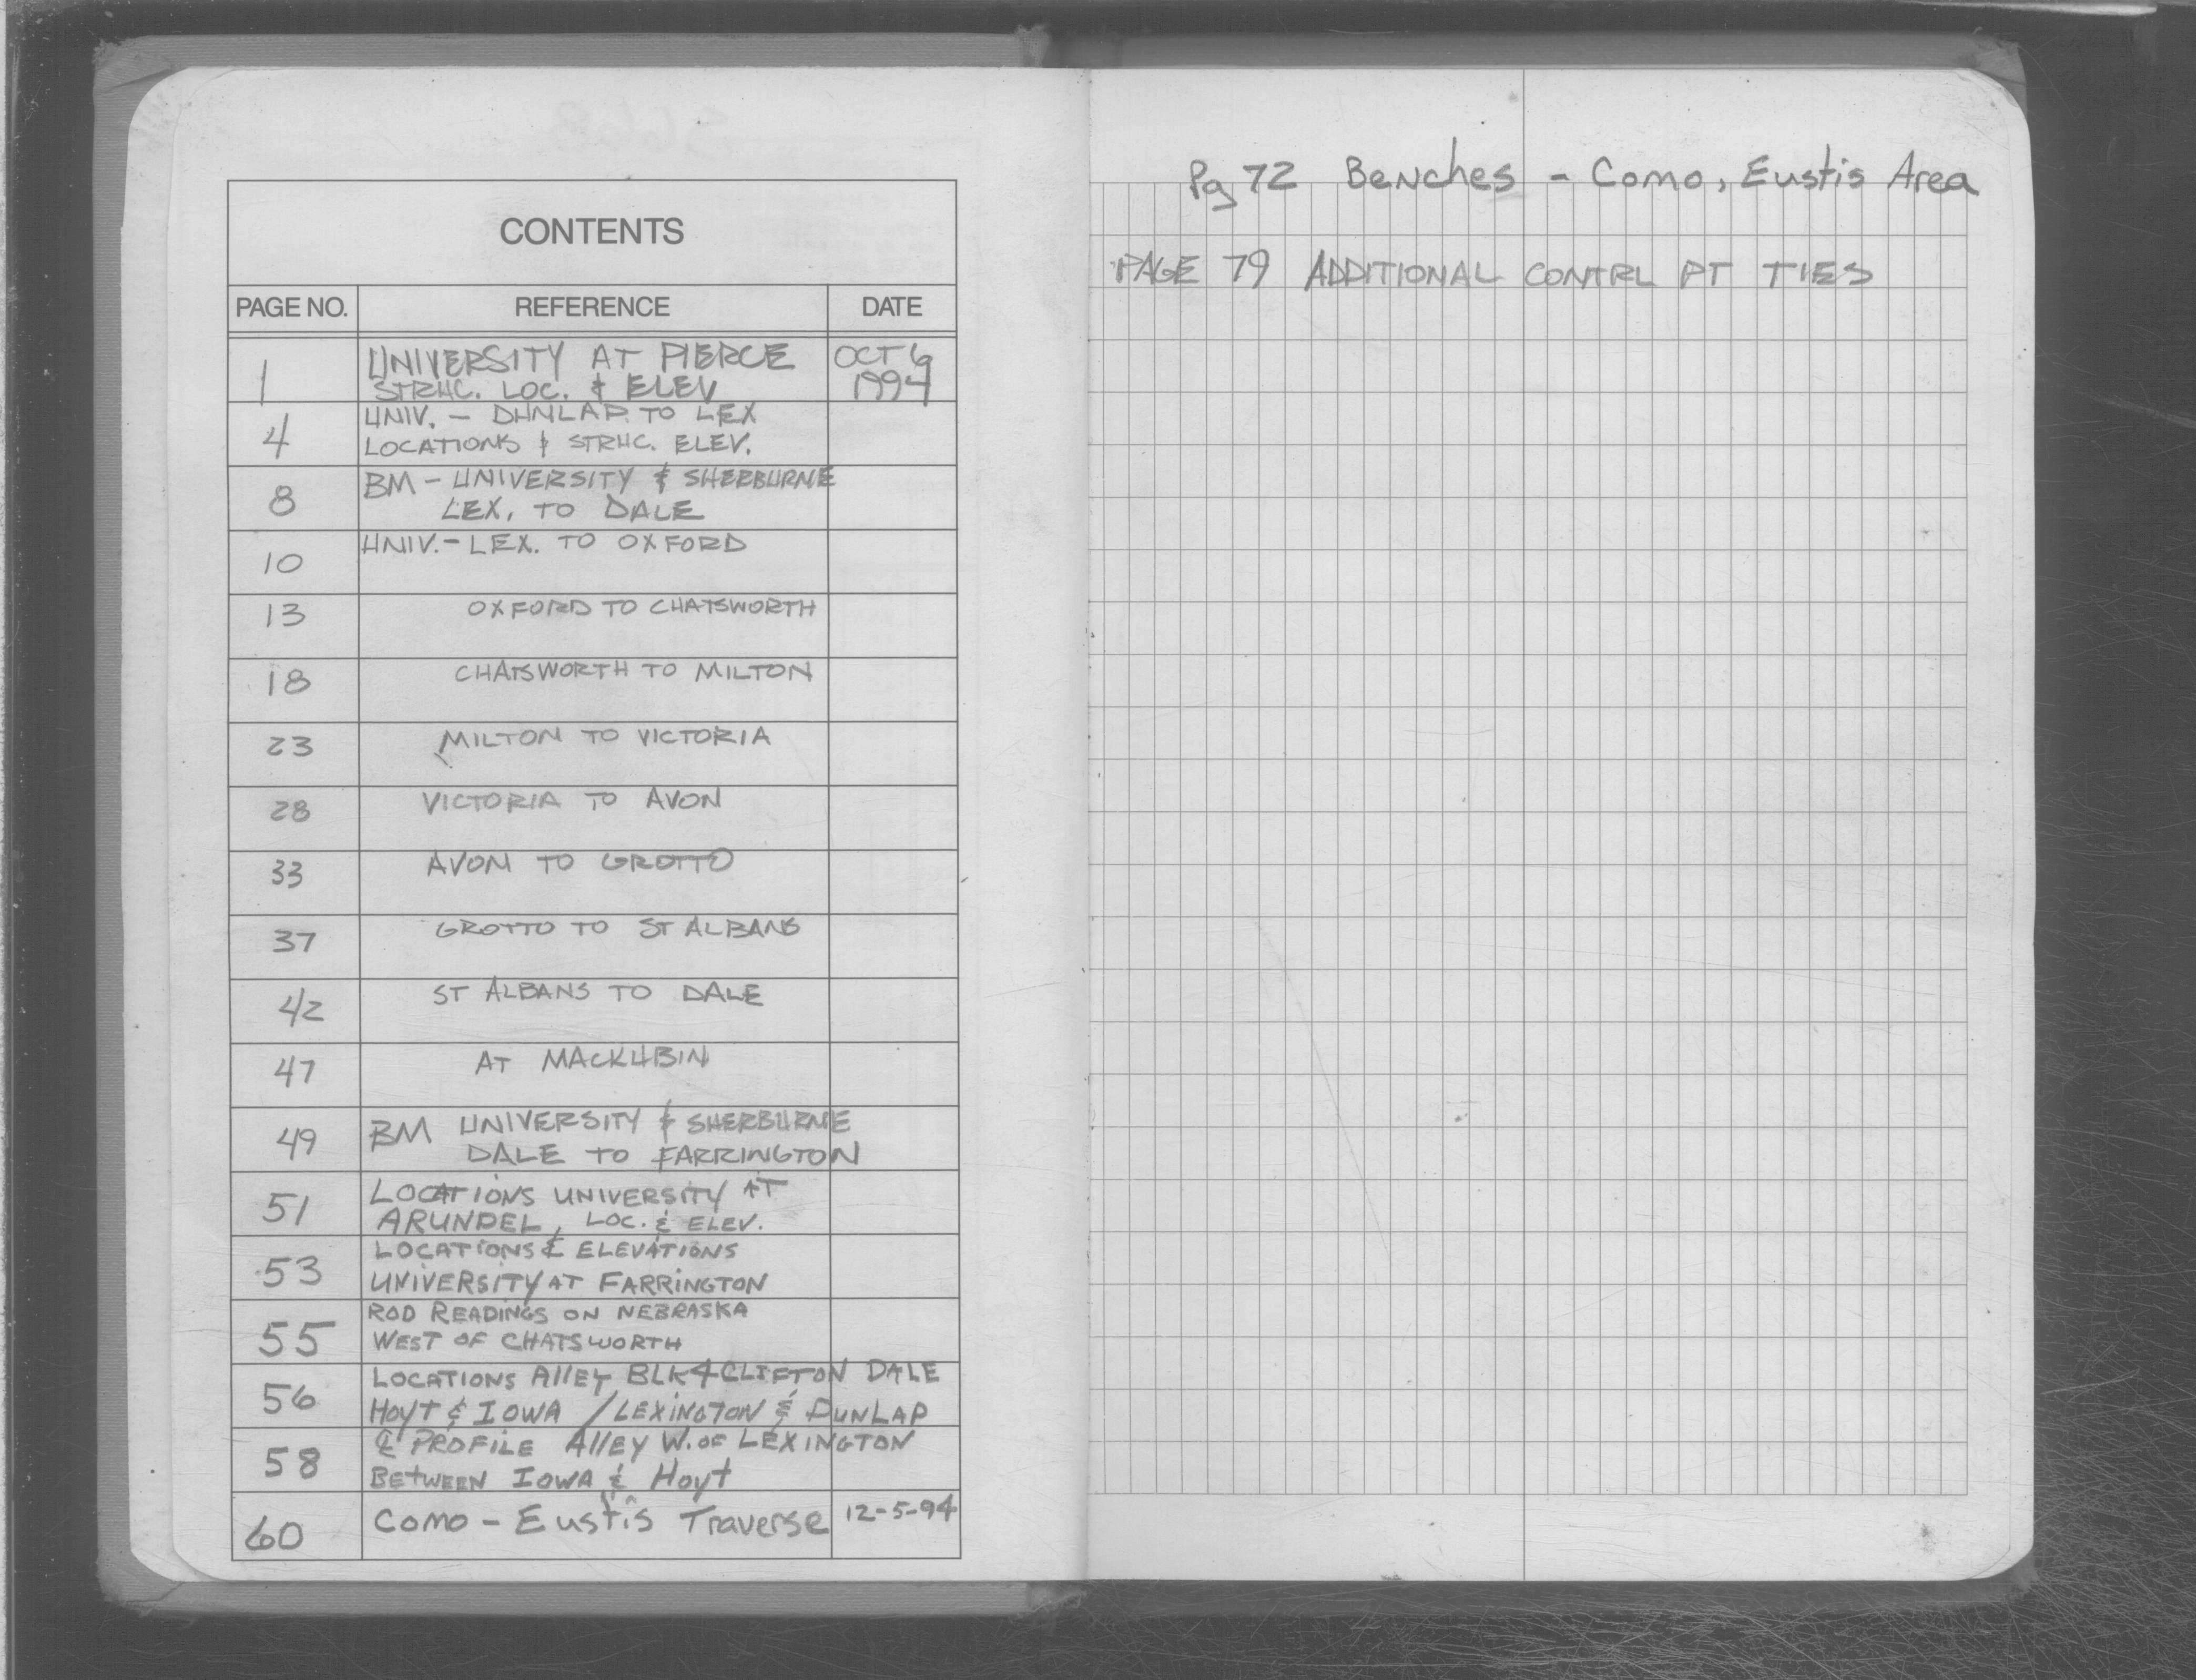 CONTENTS
PAGE NO. REFERENCE DATE
1 UNIVERSITY AT PIERCE OCT 6
STRUC. LOC. & ELEV 1994
4 UNIV. - DUNLAP TO LEX
LOCATIONS & STRUC. ELEV.
8 BM - UNIVERSITY & SHERBURNE
LEX. TO DALE
10 UNIV. - LEX. TO OXFORD
13 OXFORD TO CHATSWORTH
18 CHATSWORTH TO MILTON
23 MILTON TO VICTORIA
28 VICTORIA TO AVON
33 AVON TO GROTTO
37 GROTTO TO ST ALBANS
42 ST ALBANS TO DALE
47 AT MACKUBIN
49 BM UNIVERSITY & SHERBURNE
DALE TO FARRINGTON
51 LOCATIONS UNIVERSITY AT
ARUNDEL, LOC. & ELEV.
53 LOCATIONS & ELEVATIONS
UNIVERSITY AT FARRINGTON
55 ROD READINGS ON NEBRASKA
WEST OF CHATSWORTH
56 LOCATIONS Alley BLK 4 CLIFTON DALE
Hoyt & IOWA / LEXINGTON & DUNLAP
58 ℄ PROFILE Alley W. OF LEXINGTON
BETWEEN IOWA & Hoyt
60 Como - Eustis Traverse 12-5-94
Pg 72 Benches - Como, Eustis Area
PAGE 79 ADDITIONAL CONTRL PT TIES